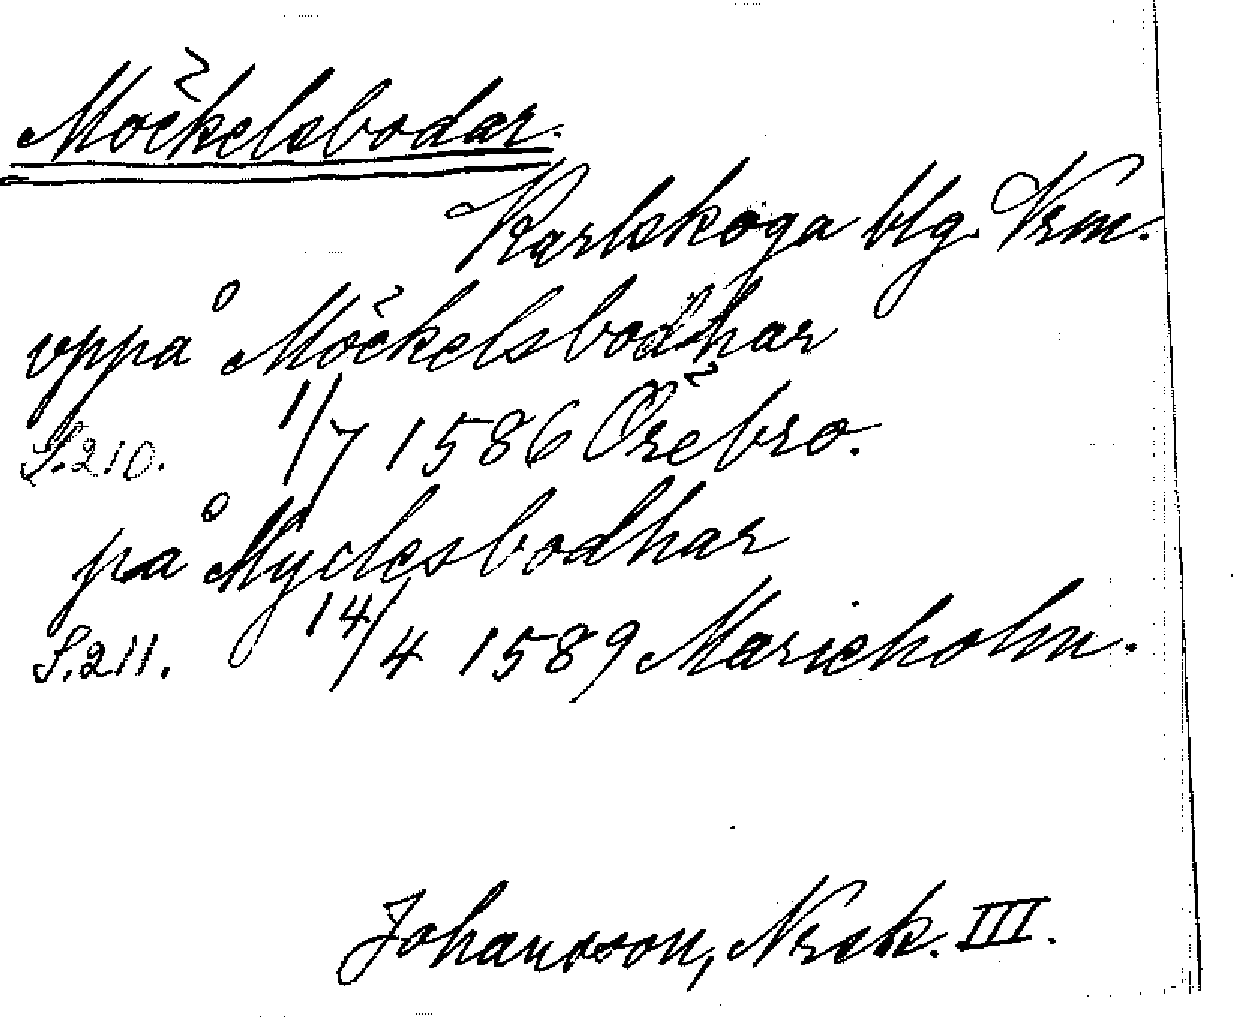 Möckelsbodar.
Karlskoga blg. Vrm.
vppå Möckelsbodhar
S. 210. 1/7 1586 Örebro.
på Myclesbodhar
S. 211. 14/4 1589 Marieholm.
Johansson, Nrck. III.